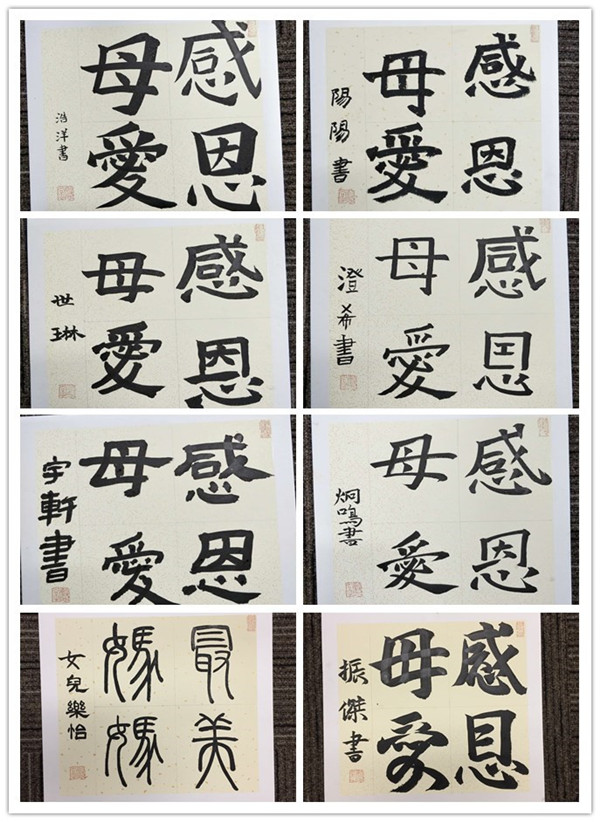 感恩
母愛
浩洋書
感恩
母愛
陽陽書
感恩
母愛
世琳
感恩
母愛
澄希書
感恩
母愛
宇軒書
感恩
母愛
炯鳴書
最美
媽媽
女兒樂怡
感恩
母愛
振傑書